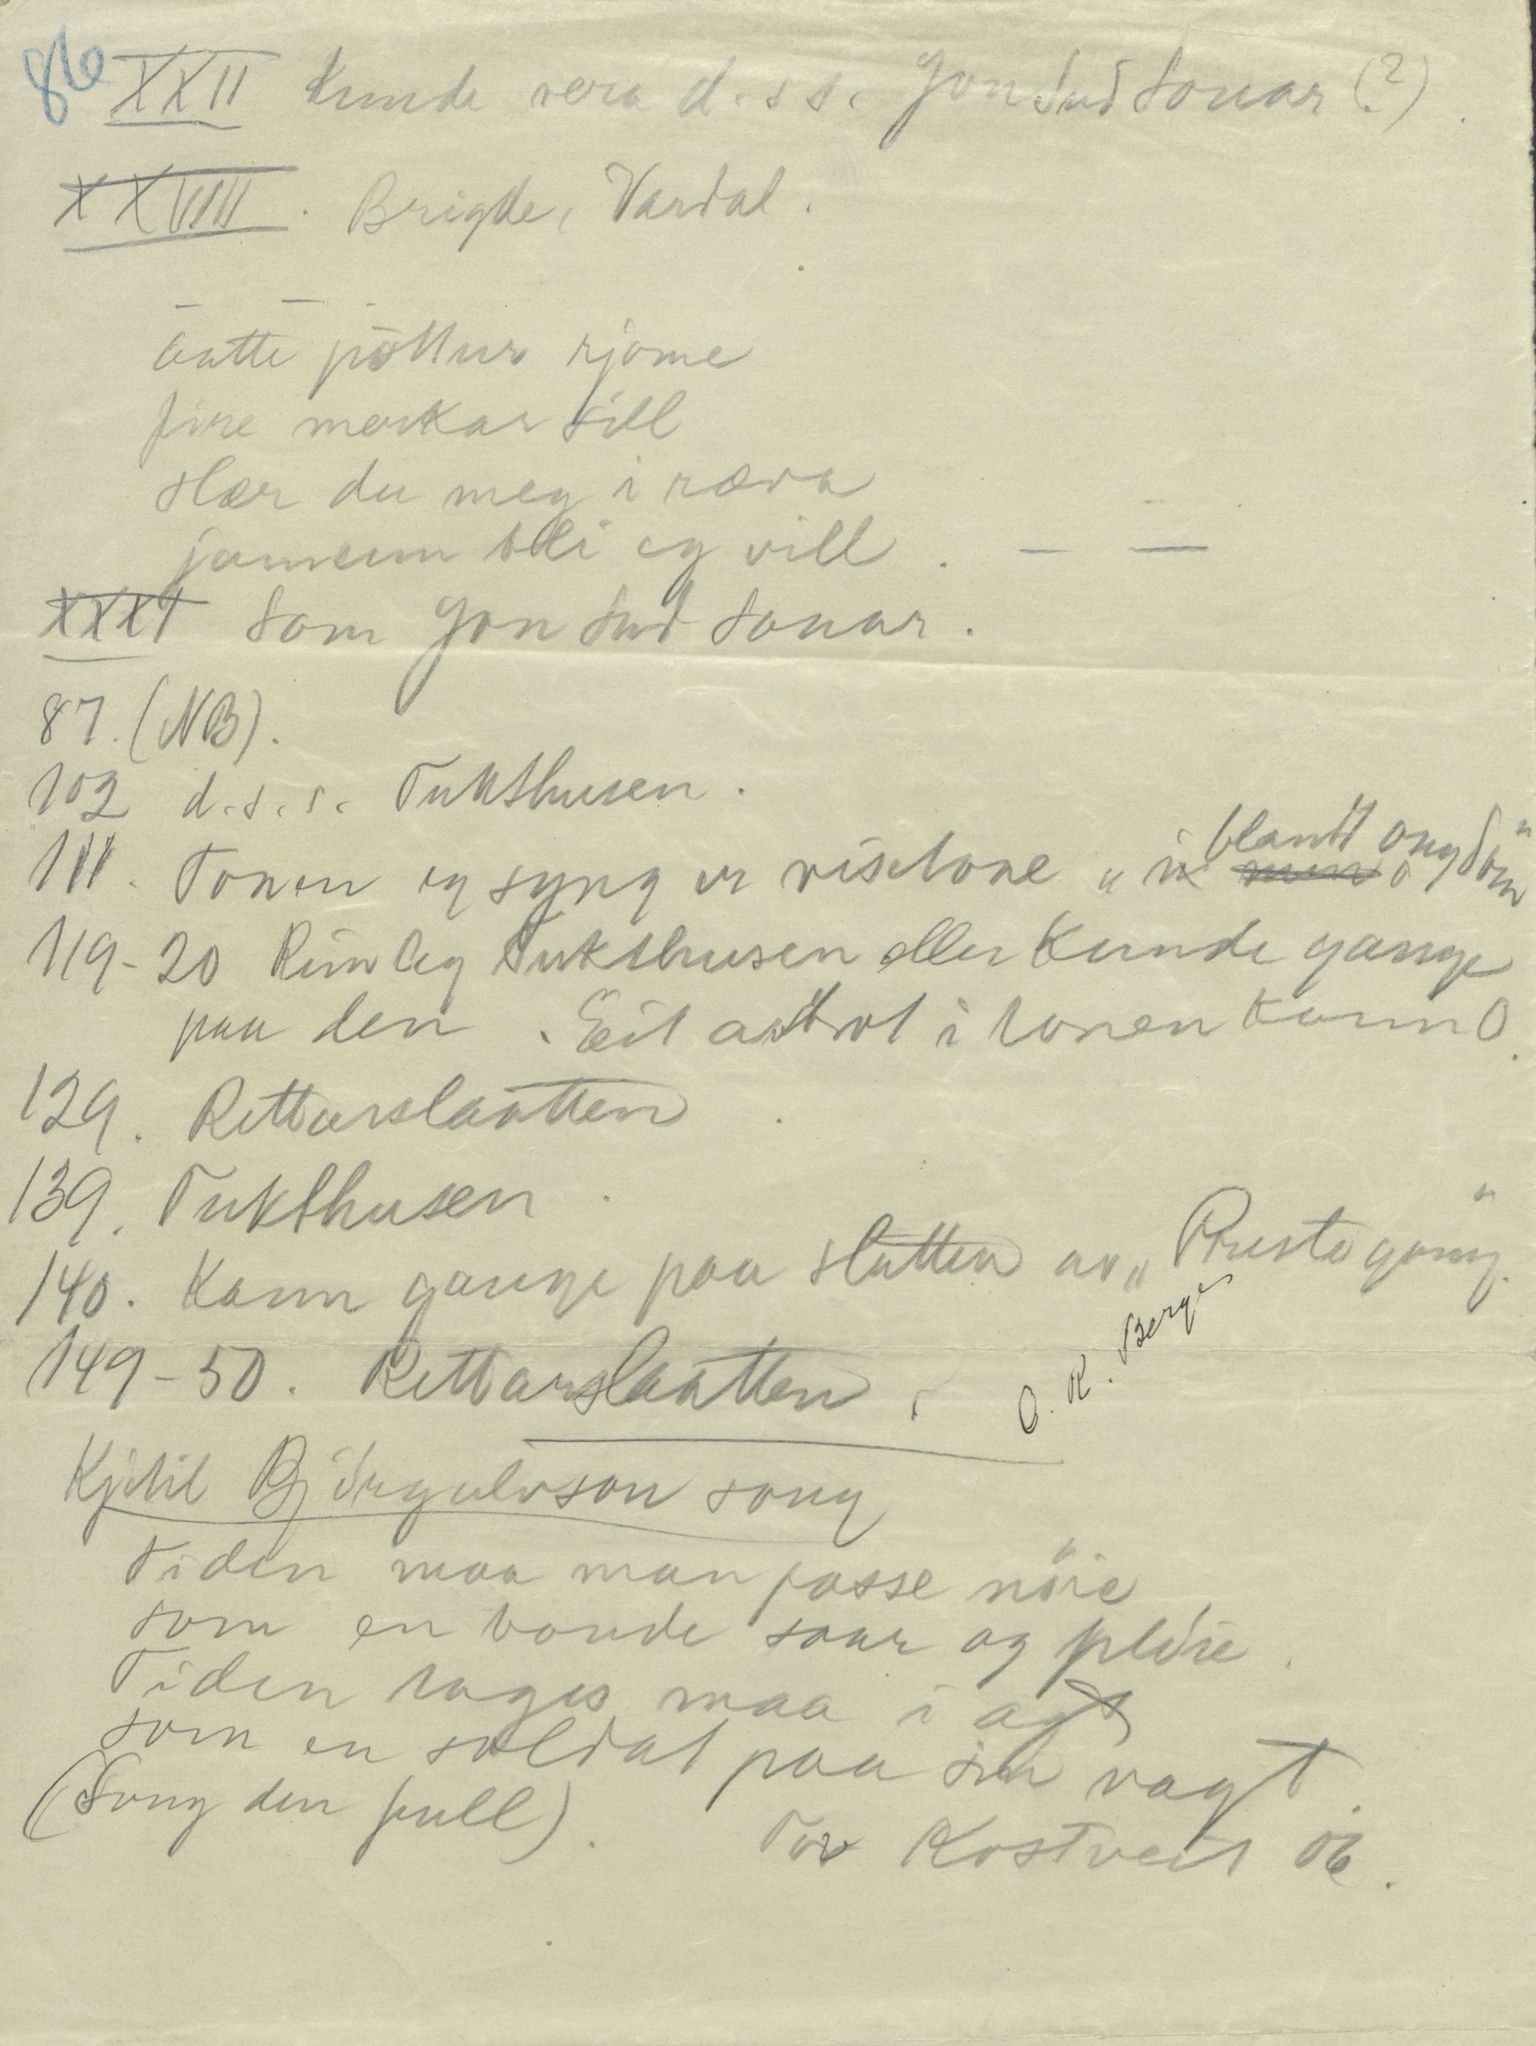 86 XXII Kunde vera d.s.s. Jon Sudsonar (?).
XXVIII. Brigtle, Vardal.
aatte pöttur rjome
fire merkar sill
slær du meg i ræva
jamenn bli eg vill. — —
XXXI Som Jon Sud Sonar.
87. (NB).
102 d.s.s. Tukthusen.
111. Tonen eg syng er visetone „ blandt
119-20 Rimleg Tukthusen eller Kunde gange
paa den. Eit i tonen kann
129. Rettarslaatten.
139. Tukthusen.
140. Kann gange paa slåtten av „Prestegang“
O. K. Berge
149-50. Rettarslaatten.
Kjetil Björgulvson song
Tiden maa man passe nöie
som en bonde saar og plöie.
Tiden tages maa i agt
som en soldat paa sin vagt.
(Song den full). Tov Kostveit 06.